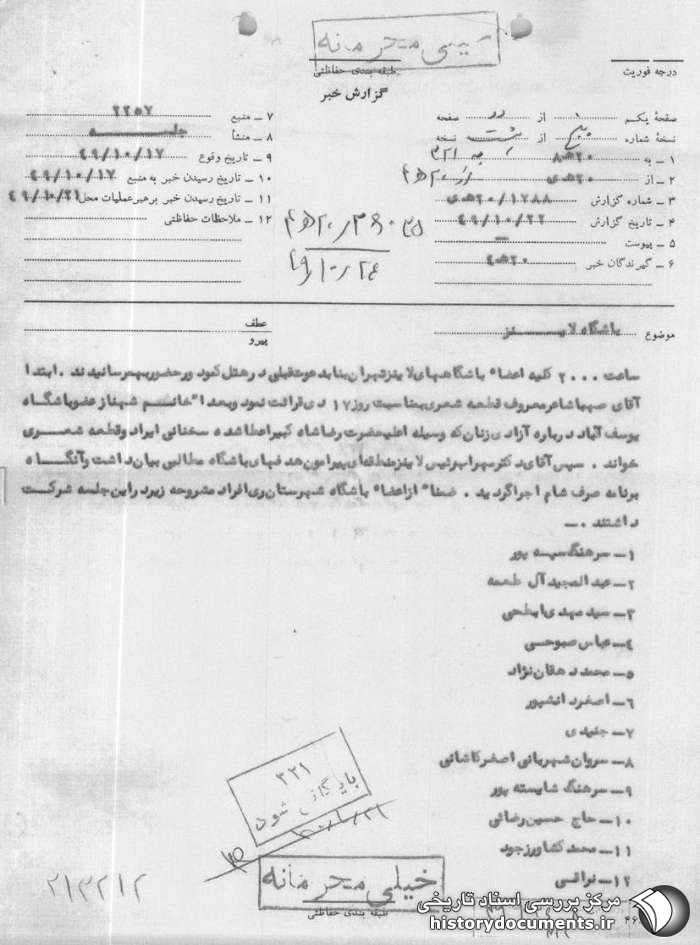 خیلی محرمانه
طبقه بندی حفاظتی
درجه فوریت
گزارش خبر
صفحهٔ یکم ۱ از دو صفحه
نسخهٔ شماره پنج از هشت نسخه
۱ ـ به ۲۰ه۸ به ۳۲۱
۲ ـ از ۲۰ه‍ی
۳ ـ شماره گزارش ۲۰ه‍ی/۱۷۸۸
۴ ـ تاریخ گزارش ۴۹/۱۰/۲۲
۵ ـ پیوست ـ
۶ ـ گیرندگان خبر ۲۰ه۴
۷ ـ منبع ۲۲۵۷
۸ ـ منشأ جلسه
۹ ـ تاریخ وقوع ۴۹/۱۰/۱۷
۱۰ ـ تاریخ رسیدن خبر به منبع ۴۹/۱۰/۱۷
۱۱ ـ تاریخ رسیدن خبر برهبر عملیات محل ۴۹/۱۰/۲۱
۱۲ ـ ملاحظات حفاظتی
موضوع باشگاه لاینز
عطف
پیرو
ساعت ۲۰۰۰ کلیه اعضاء باشگاههای لاینز تهران بنا بدعوت قبلی در هتل کمودور حضور بهمرسانیدند . ابتدا
آقای صهبا شاعر معروف قطعه شعری بمناسبت روز ۱۷ دی قرائت نمود و بعداً خانم شهناز عضو باشگاه
یوسف آباد درباره آزادی زنان که وسیله اعلیحضرت رضاشاه کبیر اعطا شده سخنانی ایراد و قطعه شعری
خواند . سپس آقای دکتر سهراب رئیس لاینز منطقه‌ای پیرامون هدفهای باشگاه مطالبی بیان داشت و آنگاه
برنامه صرف شام اجرا گردید . ضمناً از اعضاء باشگاه شهرستان ری افراد مشروحه زیر در این جلسه شرکت
داشتند . ـ
۱ ـ سرهنگ سیسه پور
۲ ـ عبدالمجید آل طعمه
۳ ـ سید مهدی ابطحی
۴ ـ عباس صبوحی
۵ ـ محمد دهقان نژاد
۶ ـ اصغر دانشپور
۷ ـ جنیدی
۸ ـ سروان شهربانی اصغر کاشانی
۹ ـ سرهنگ شایسته پور
۱۰ ـ حاج حسین رضائی
۱۱ ـ محمد کشاورز جود
۱۲ ـ نراقی
۳۲۱
بایگانی شود
خیلی محرمانه
طبقه بندی حفاظتی
۲۱۳۲۱۲
۴۶
مرکز بررسی اسناد تاریخی
historydocuments.ir